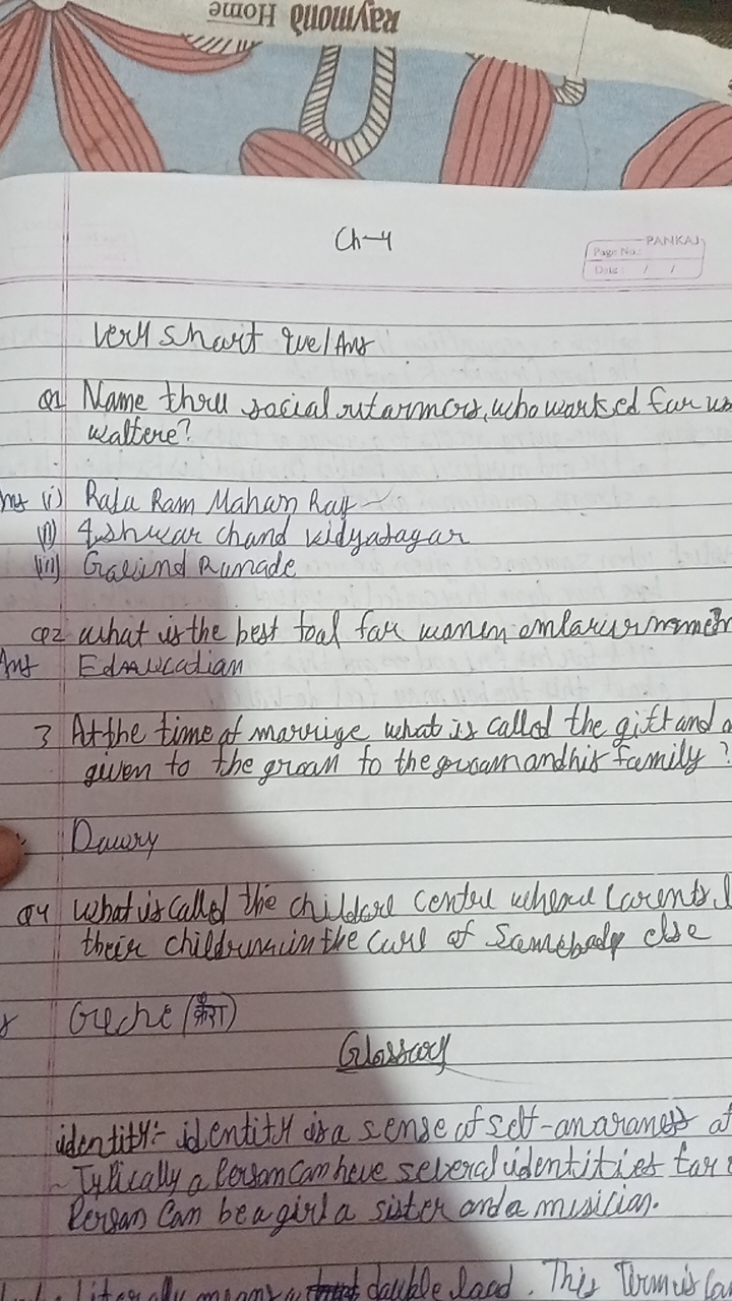 Raymond Home
Ch-4
PANKAJ
Page No.:
Date: / /
Very short Que/Ans
Q1 Name three social reformers, who worked for
walfere?
Ans (i) Raja Ram Mohan Ray
(ii) Ishwar chand vidyasagar
(iii) Govind Ranade
Q2 what is the best tool for women
Ans Education
3 At the time of marrige what is called the gift and
given to the groom to the groom and his family?
Dowry
Q4 What is called the childcare center where parents
their children in the care of Somebody else
Creche (क्रैश)
Glossary
identity:- identity is a sense of self-awareness of
- Typically a Person can have several identities for
Person Can be a girl a sister and a musician.
literally means double load. This Term is